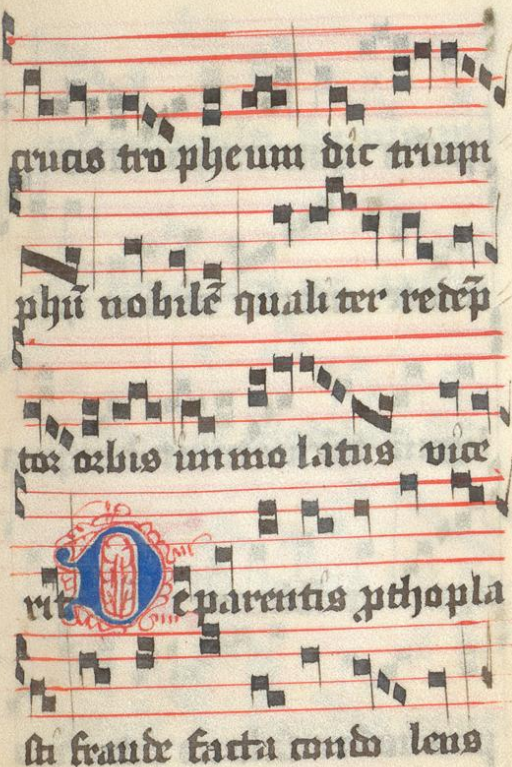 crucis tro pheum dic trium
phū nobilē quali ter redēp
tor orbis immo latus vice
rit De parentis ꝓthopla
sti fraude facta condo lens